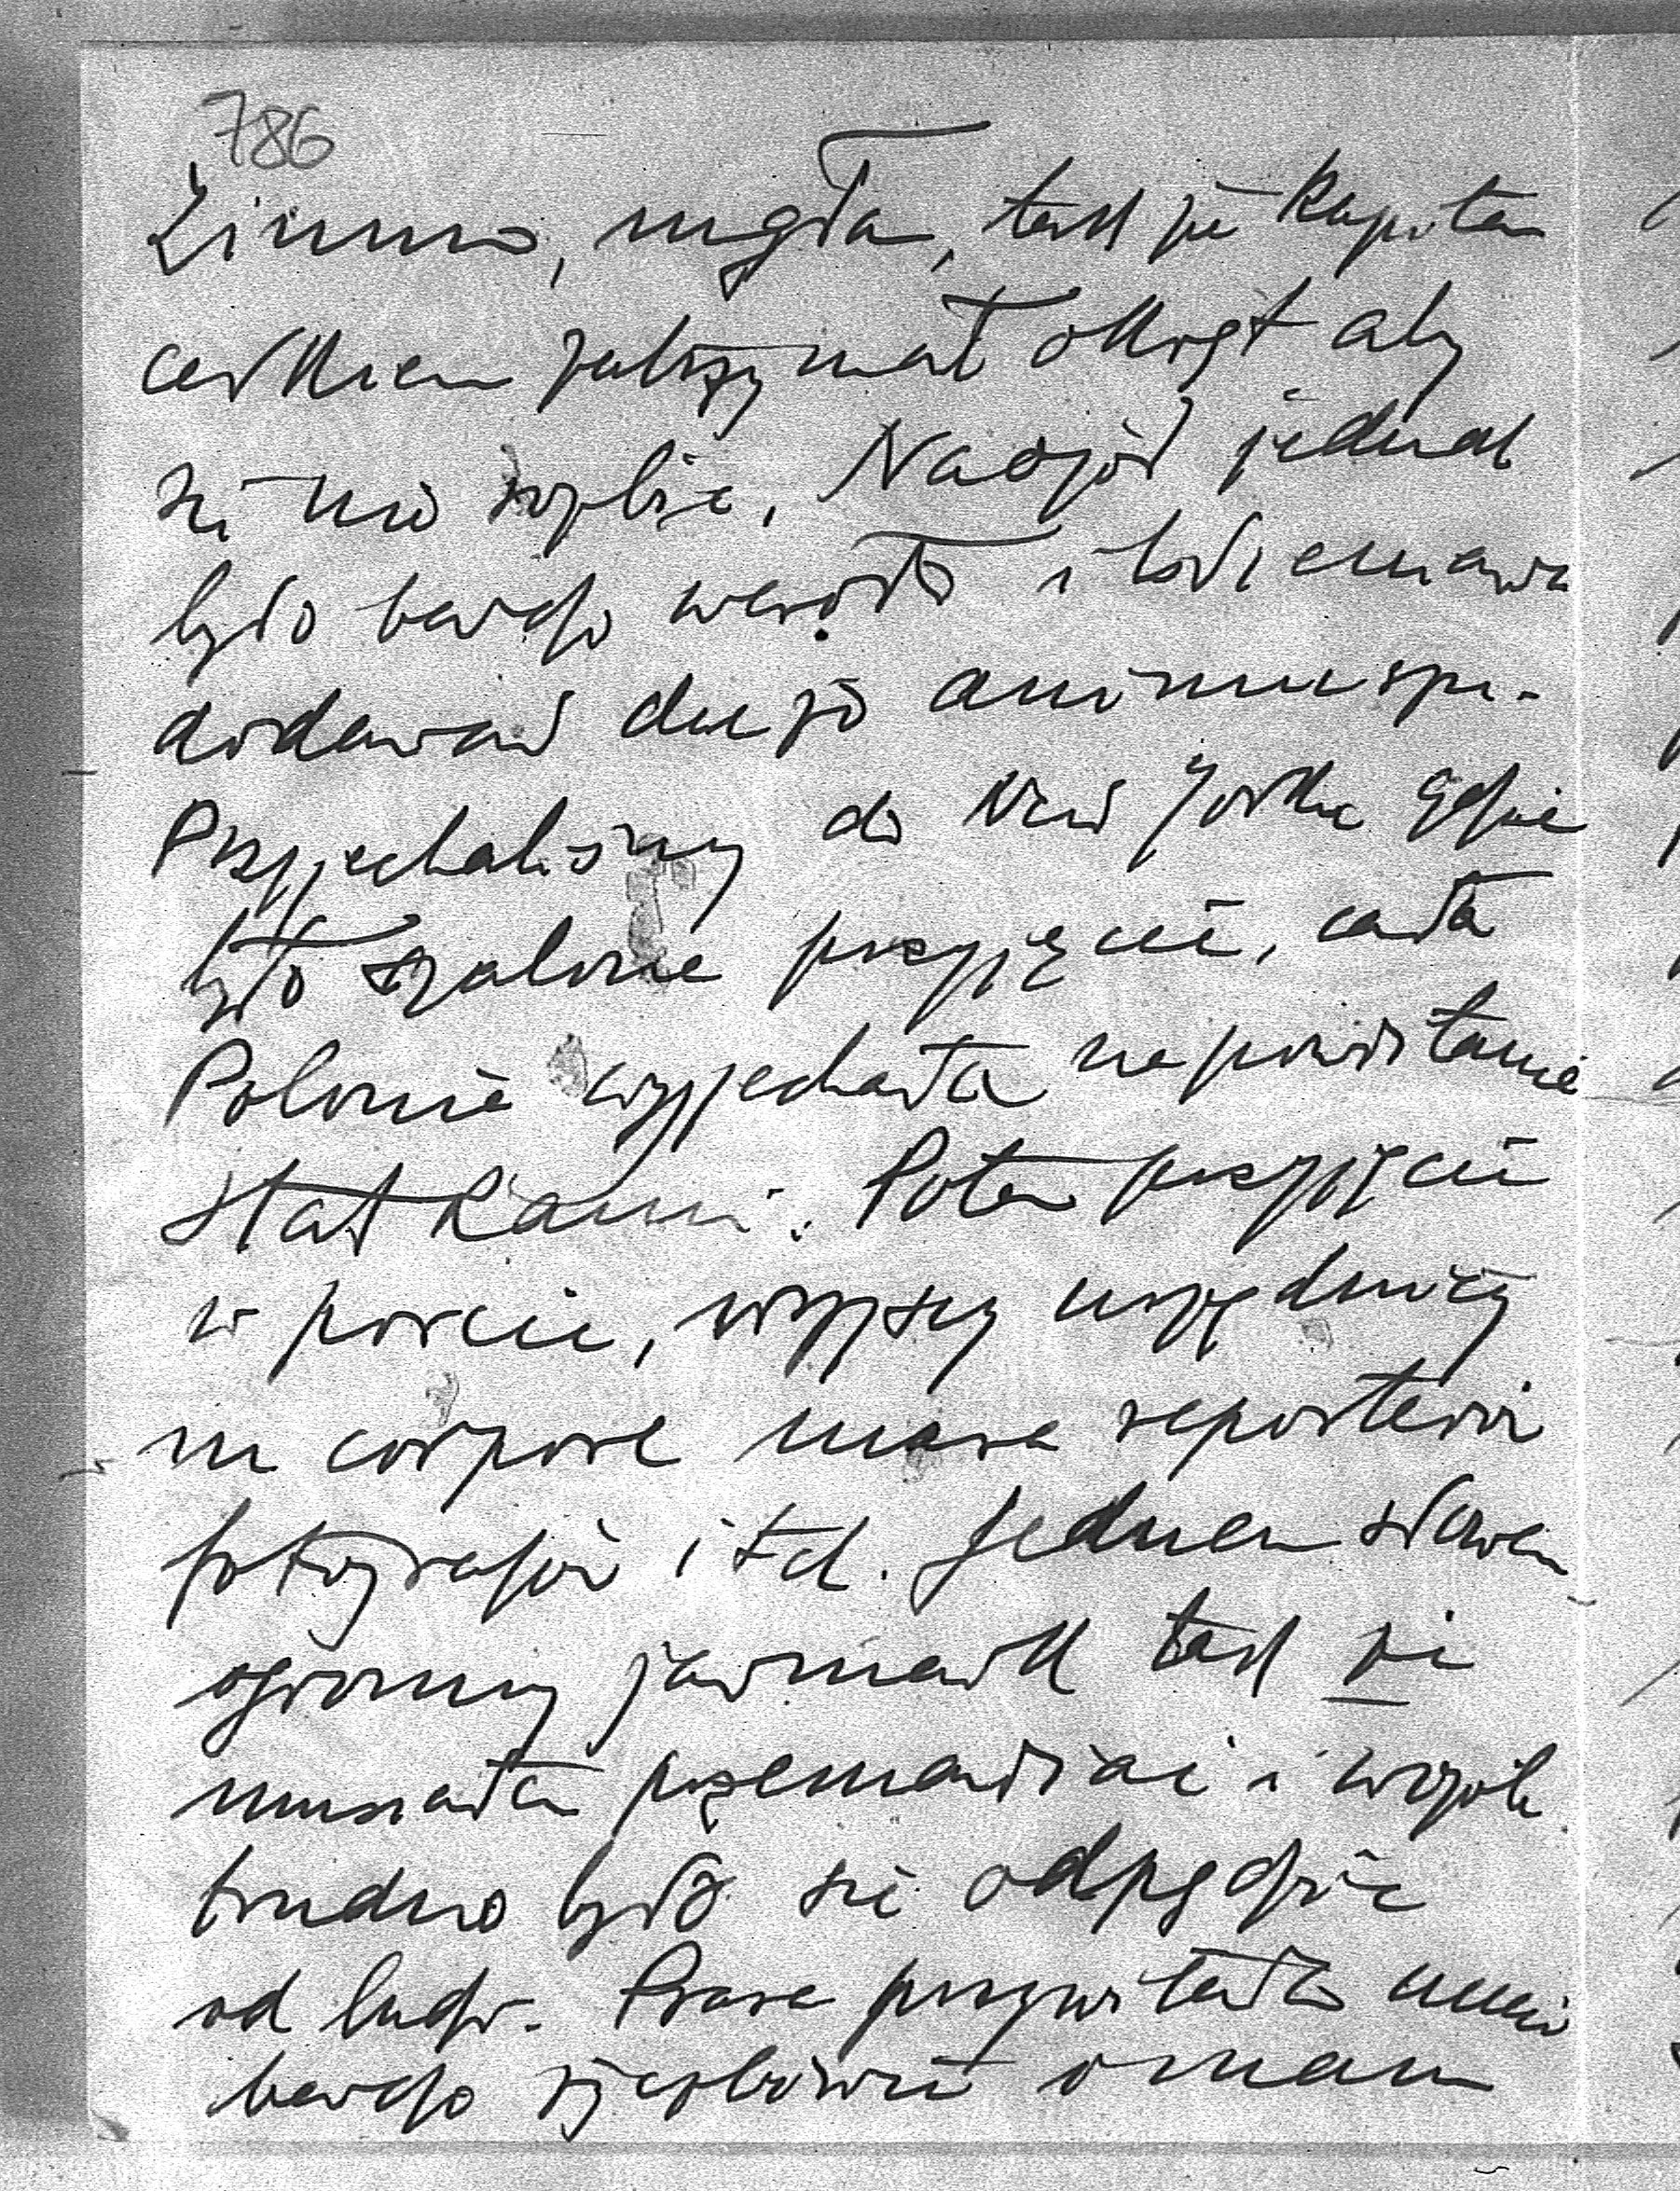 786
Zimno, mgła, tak że kapitan
całkiem zatrzymał okręt aby
się nie rozbić. Naogół jednak
było bardzo wesoło i
dodawał dużo animuszu.
Przyjechaliśmy do New Yorku gdzie
było szalone przyjęcie, cała
Polonia wyjechała na powitanie
statkami. Potem przyjęcie
w porcie, wyżsi urzędnicy
in corpore masa reporterów
fotografów itd. Jednem słowem
ogromny jarmark tak że
musiała przemawiać i wogóle
trudno było się odpędzić
od ludzi. Prasa przywitała mnie
bardzo życzliwie mam